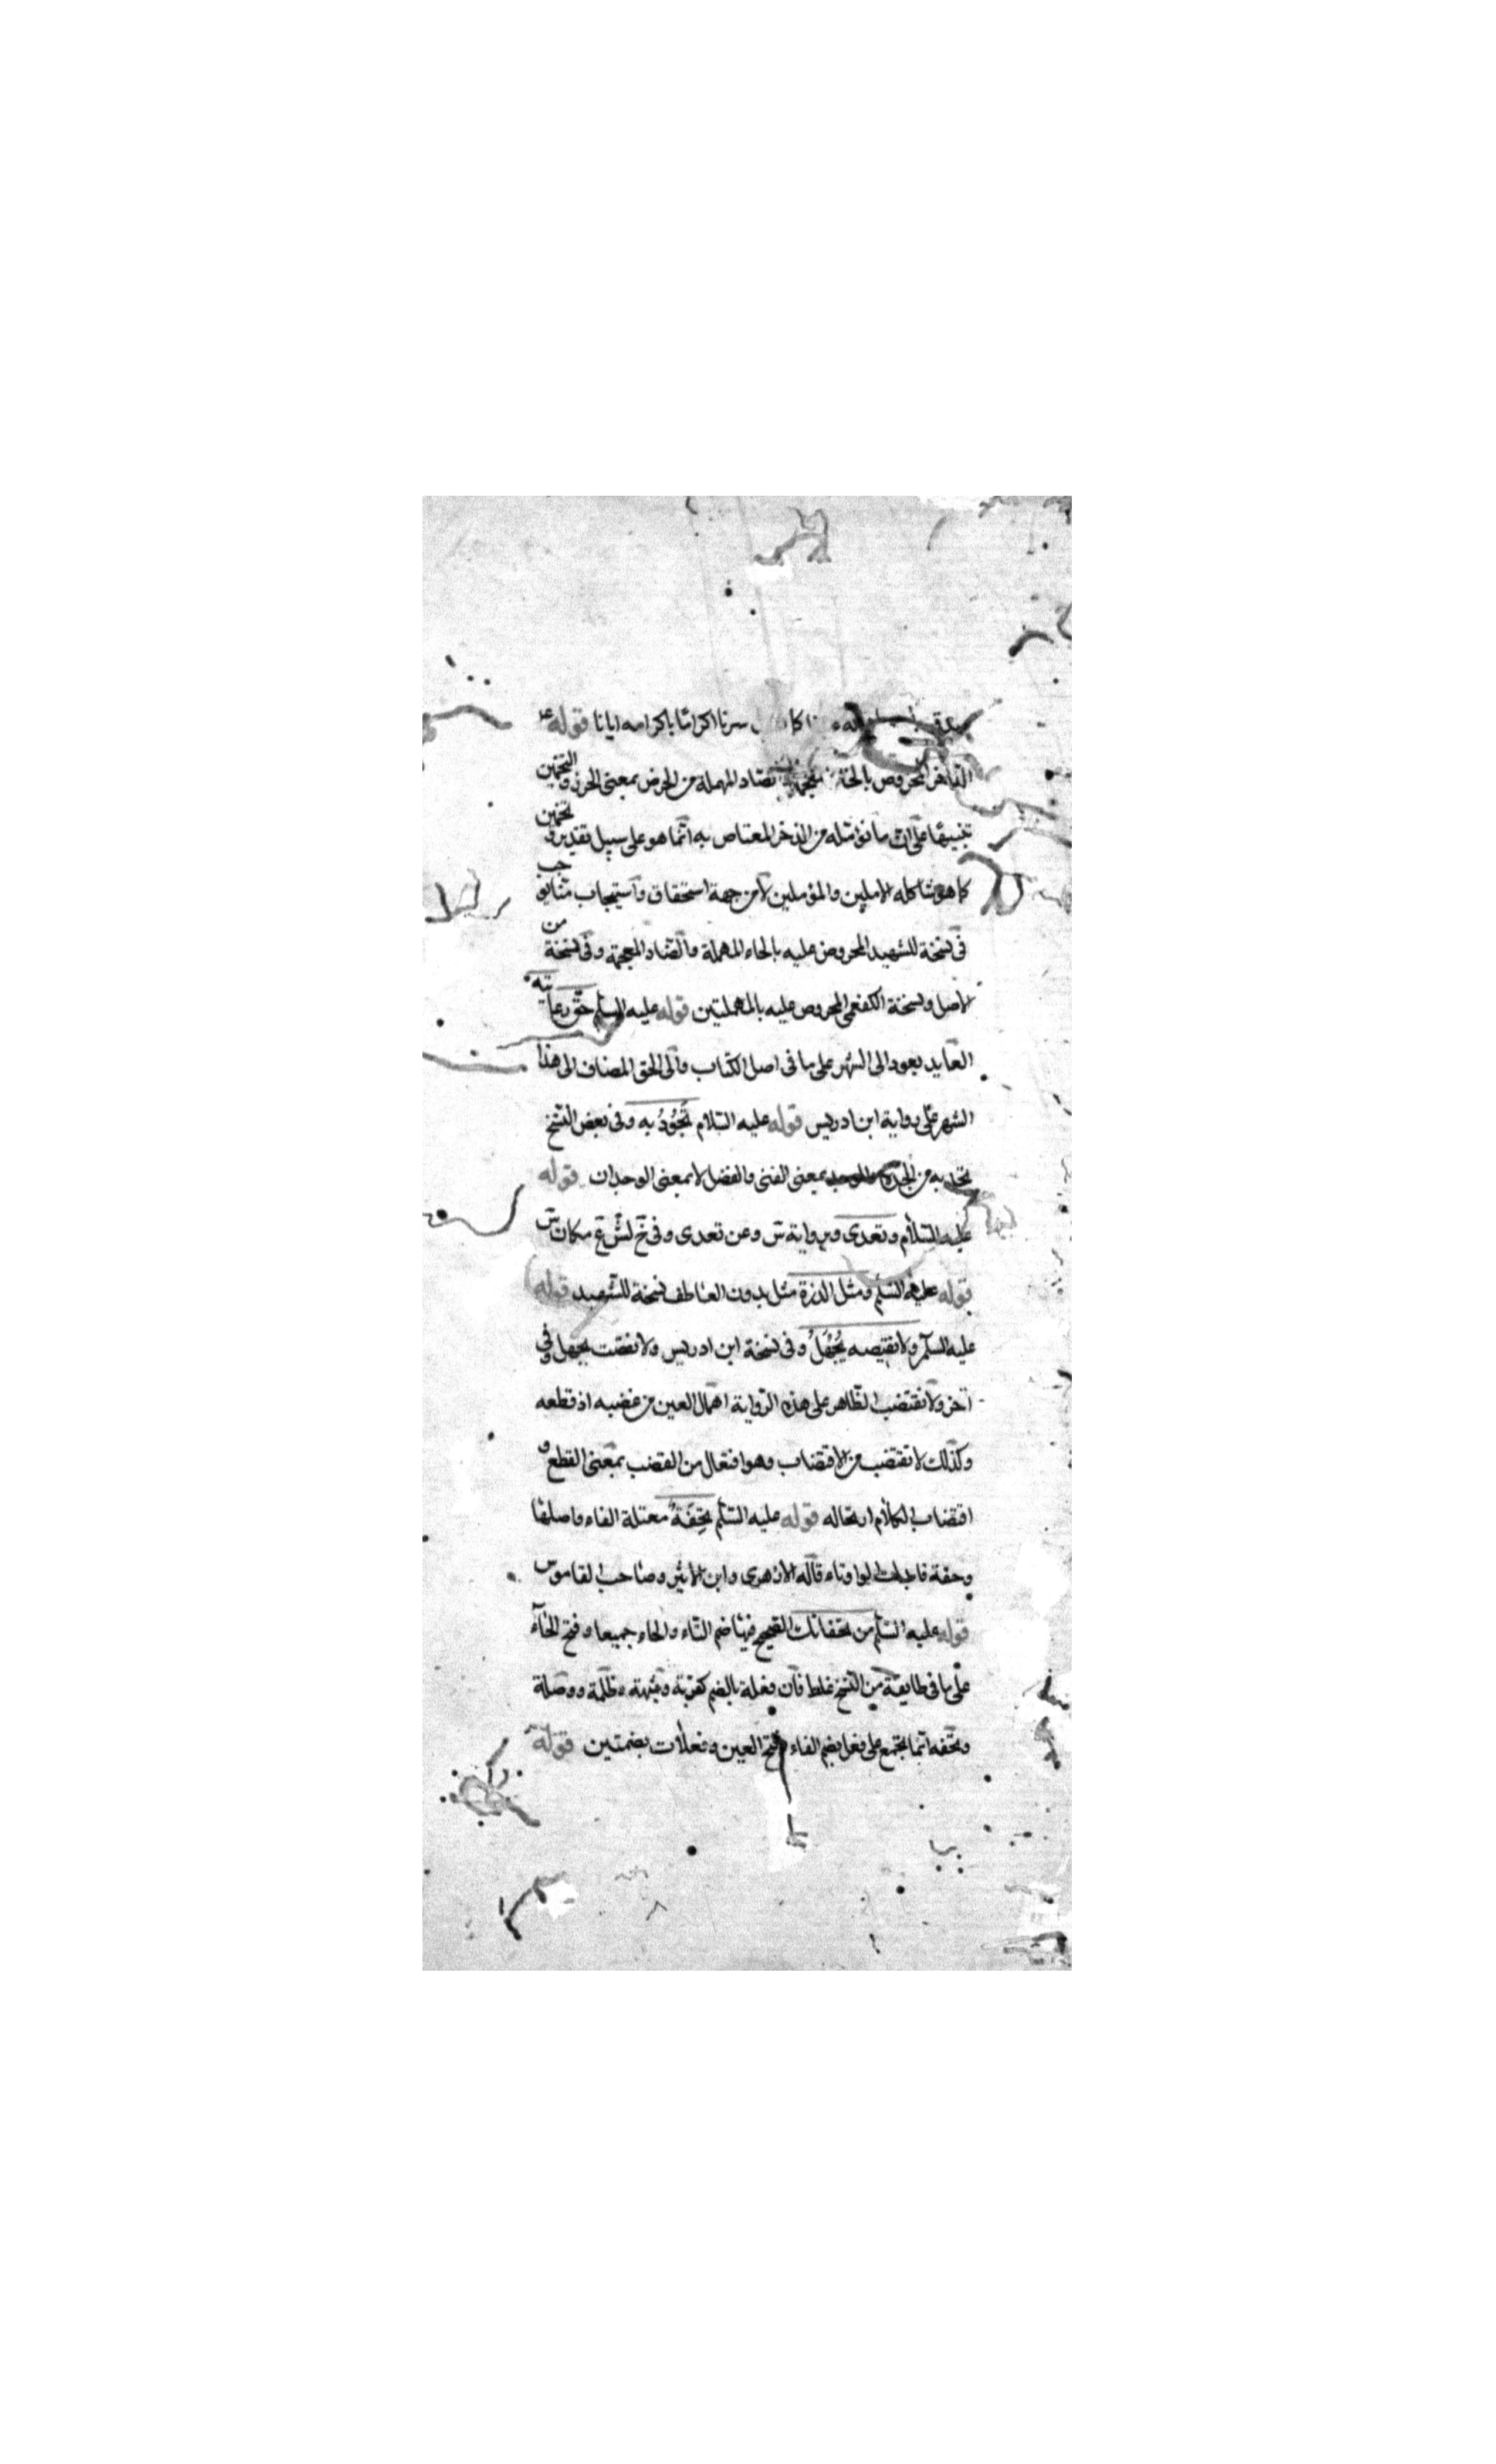 اكراما باكرامه ايانا قوله ع
الظاهر المحروص بالخاء المعجمة والصاد المهملة من الخرص بمعنى الحرز والتخمين
تنبيها على ان ما نؤمله من الذخر المعتاض به انما هو على سبيل تقدير و تخمين
كما هو شاكلة الاملين والمؤملين لا من جهة استحقاق واستيجاب منا و
فى نسخة للشهيد المحروض عليه بالحاء المهملة والضاد المعجمة وفى نسخة من
الاصل ونسخة الكفعمى المحروص عليه بالمهملتين قوله عليه السلم حق رعايته
العايد يعود الى الشهر على ما فى اصل الكتاب والى الحق المضاف الى هذا
الشهر على رواية ابن ادريس قوله عليه السلام تَجُوُدُ به وفى بعض النسخ
تجد به من الجدة بمعنى الغنى والفضل لا بمعنى الوجدان قوله
عليه السلام وتعدى وبرواية س وعن تعدى وفى خ لش ع مكان س
قوله عليه السلم ومثل الذرة مثل بدون العاطف نسخة للشهيد قوله
عليه السلم ولا نقيصه بجُهْلُ وفى نسخة ابن ادريس ولا نغضت بجهل وفى
اخر ولا نقتضب الظاهر على هذه الرواية اهمال العين من عضبه اذ قطعه
وكذلك لا تقتضب من الاقتضاب وهو افتعال من القضب بمعنى القطع و
اقتضاب الكلام ارتجاله قوله عليه السلم تحفة معتلة الفاء واصلها
وحفة فابدلت الواو تاء قاله الازهرى وابن الاثير وصاحب القاموس
قوله عليه السلم من تحفاتك الصحيح فيها ضم التاء والحاء جميعا وفتح الحآء
على ما فى طايفة من النسخ غلط فان فعلة بالضم كقربة وشبهة وظلمة ووصلة
وتحفه انما يجتمع على فعل بضم الفاء وفتح العين وفعلات بضمتين قوله